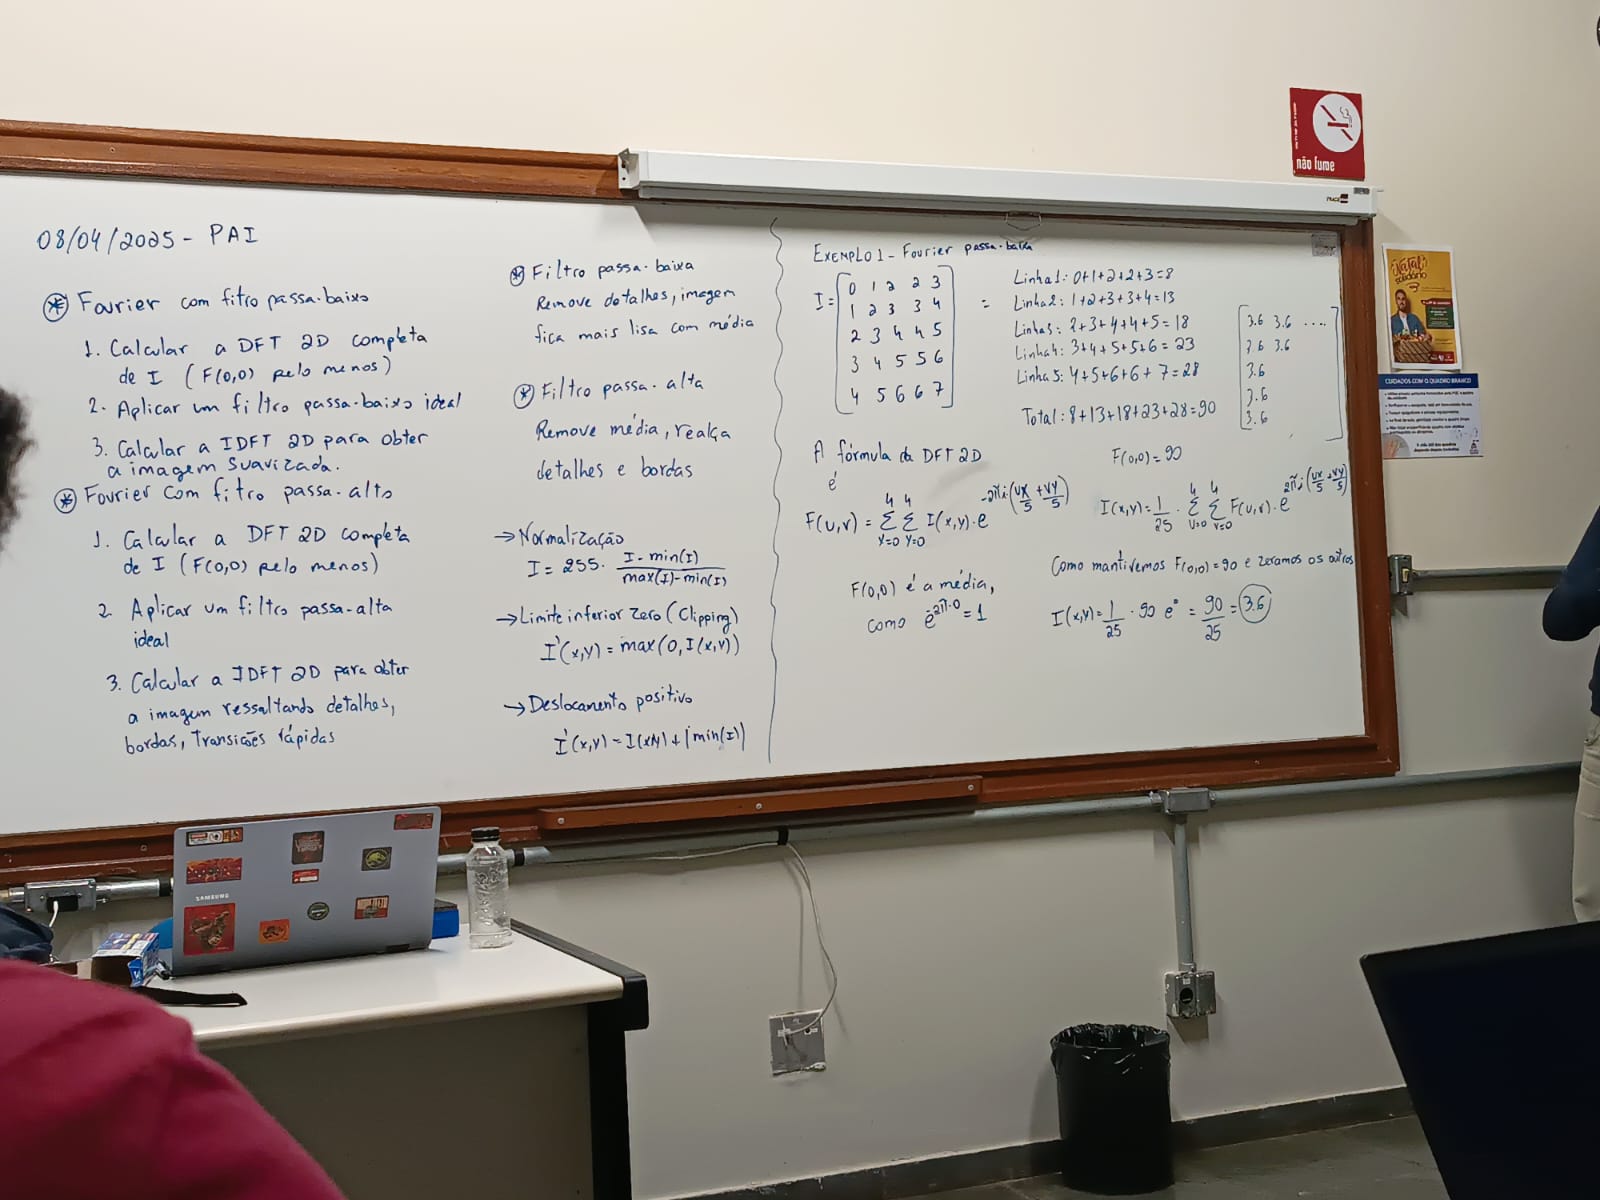 08/04/2025 - PAI
* Fourier com fitro passa-baixo
1. Calcular a DFT 2D completa
de I (F(0,0) pelo menos)
2. Aplicar um filtro passa-baixo ideal
3. Calcular a IDFT 2D para obter
a imagem suavizada.
* Fourier com fitro passa-alto
1. Calcular a DFT 2D completa
de I (F(0,0) pelo menos)
2 Aplicar um filtro passa-alta
ideal
3. Calcular a IDFT 2D para obter
a imagem ressaltando detalhes,
bordas, Transições rápidas
* Filtro passa-baixa
Remove detalhes, imagem
fica mais lisa com média
* Filtro passa-alta
Remove média, realça
detalhes e bordas
→ Normalização
I = 255 · I - min(I) / max(I) - min(I)
→ Limite inferior Zero (Clipping)
I'(x,y) = max(0, I(x,y))
→ Deslocamento positivo
I'(x,y) = I(x,y) + |min(I)|
EXEMPLO 1 - Fourier passa-baixa
I = [0 1 2 2 3
1 2 3 3 4
2 3 4 4 5
3 4 5 5 6
4 5 6 6 7]
=
Linha 1: 0+1+2+2+3=8
Linha 2: 1+2+3+3+4=13
Linha 3: 2+3+4+4+5=18
Linha 4: 3+4+5+5+6=23
Linha 5: 4+5+6+6+7=28
Total: 8+13+18+23+28=90
[3.6 3.6 ....
3.6 3.6
3.6
3.6
3.6]
A fórmula da DFT 2D
é
F(u,v) = Σ x=0 4 Σ y=0 4 I(x,y) · e^-2πi·(ux/5 + vy/5)
F(0,0) é a média,
como e^-2π·0 = 1
F(0,0) = 90
I(x,y) = 1/25 · Σ u=0 4 Σ v=0 4 F(u,v) · e^2πi·(ux/5 + vy/5)
Como mantivemos F(0,0) = 90 e zeramos os outros
I(x,y) = 1/25 · 90 e° = 90/25 = 3.6
não fume
Natal
solidário
CUIDADOS COM O QUADRO BRANCO
SAMSUNG